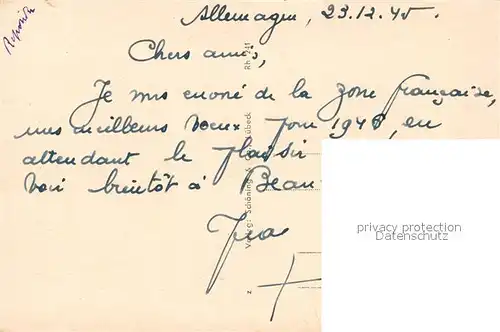 Répondu
Allemagne, 23.12.45.
Chers amis,
Je vous envoie de la zone française,
mes meilleurs voeux pour 1946, en
attendant le plaisir
voir bientôt à Beau
Verlag: Schöning & Lübeck
Rh 241
privacy protection
Datenschutz